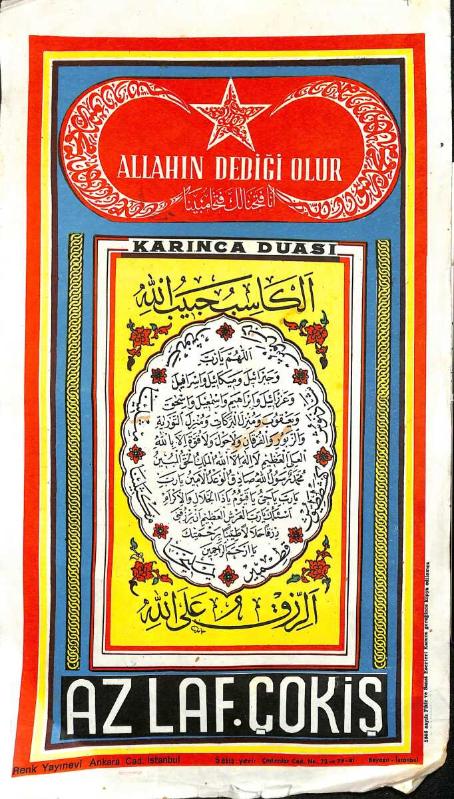 ALLAHIN DEDİĞİ OLUR
انا فتحنا لك فتحا مبينا
KARINCA DUASI
الكاسب حبيب الله
اللهم يارب
وجبرائيل وميكائيل واسرافيل
وعزرائيل وابراهيم واسمعيل واسحق
ويعقوب ومنزل البركات ومنزل التورية
والزبور والفرقان ولاحول ولا قوة الا بالله
العلى العظيم لا اله الا الله الملك الحق المبين
محمد رسول الله صادق الوعد الامين يارب
يارب ياحى ياقيوم ياذا الجلال والاكرام
اسئلك يارب العرش العظيم ان ترزقنى
رزقا حلالا طيبا برحمتك
يا ارحم الراحمين
الرزق على الله
AZ LAF. ÇOK İŞ
Renk Yayınevi Ankara Cad. Istanbul
Satış yeri: Çadırcılar Cad. No.
Beyazıt - İstanbul